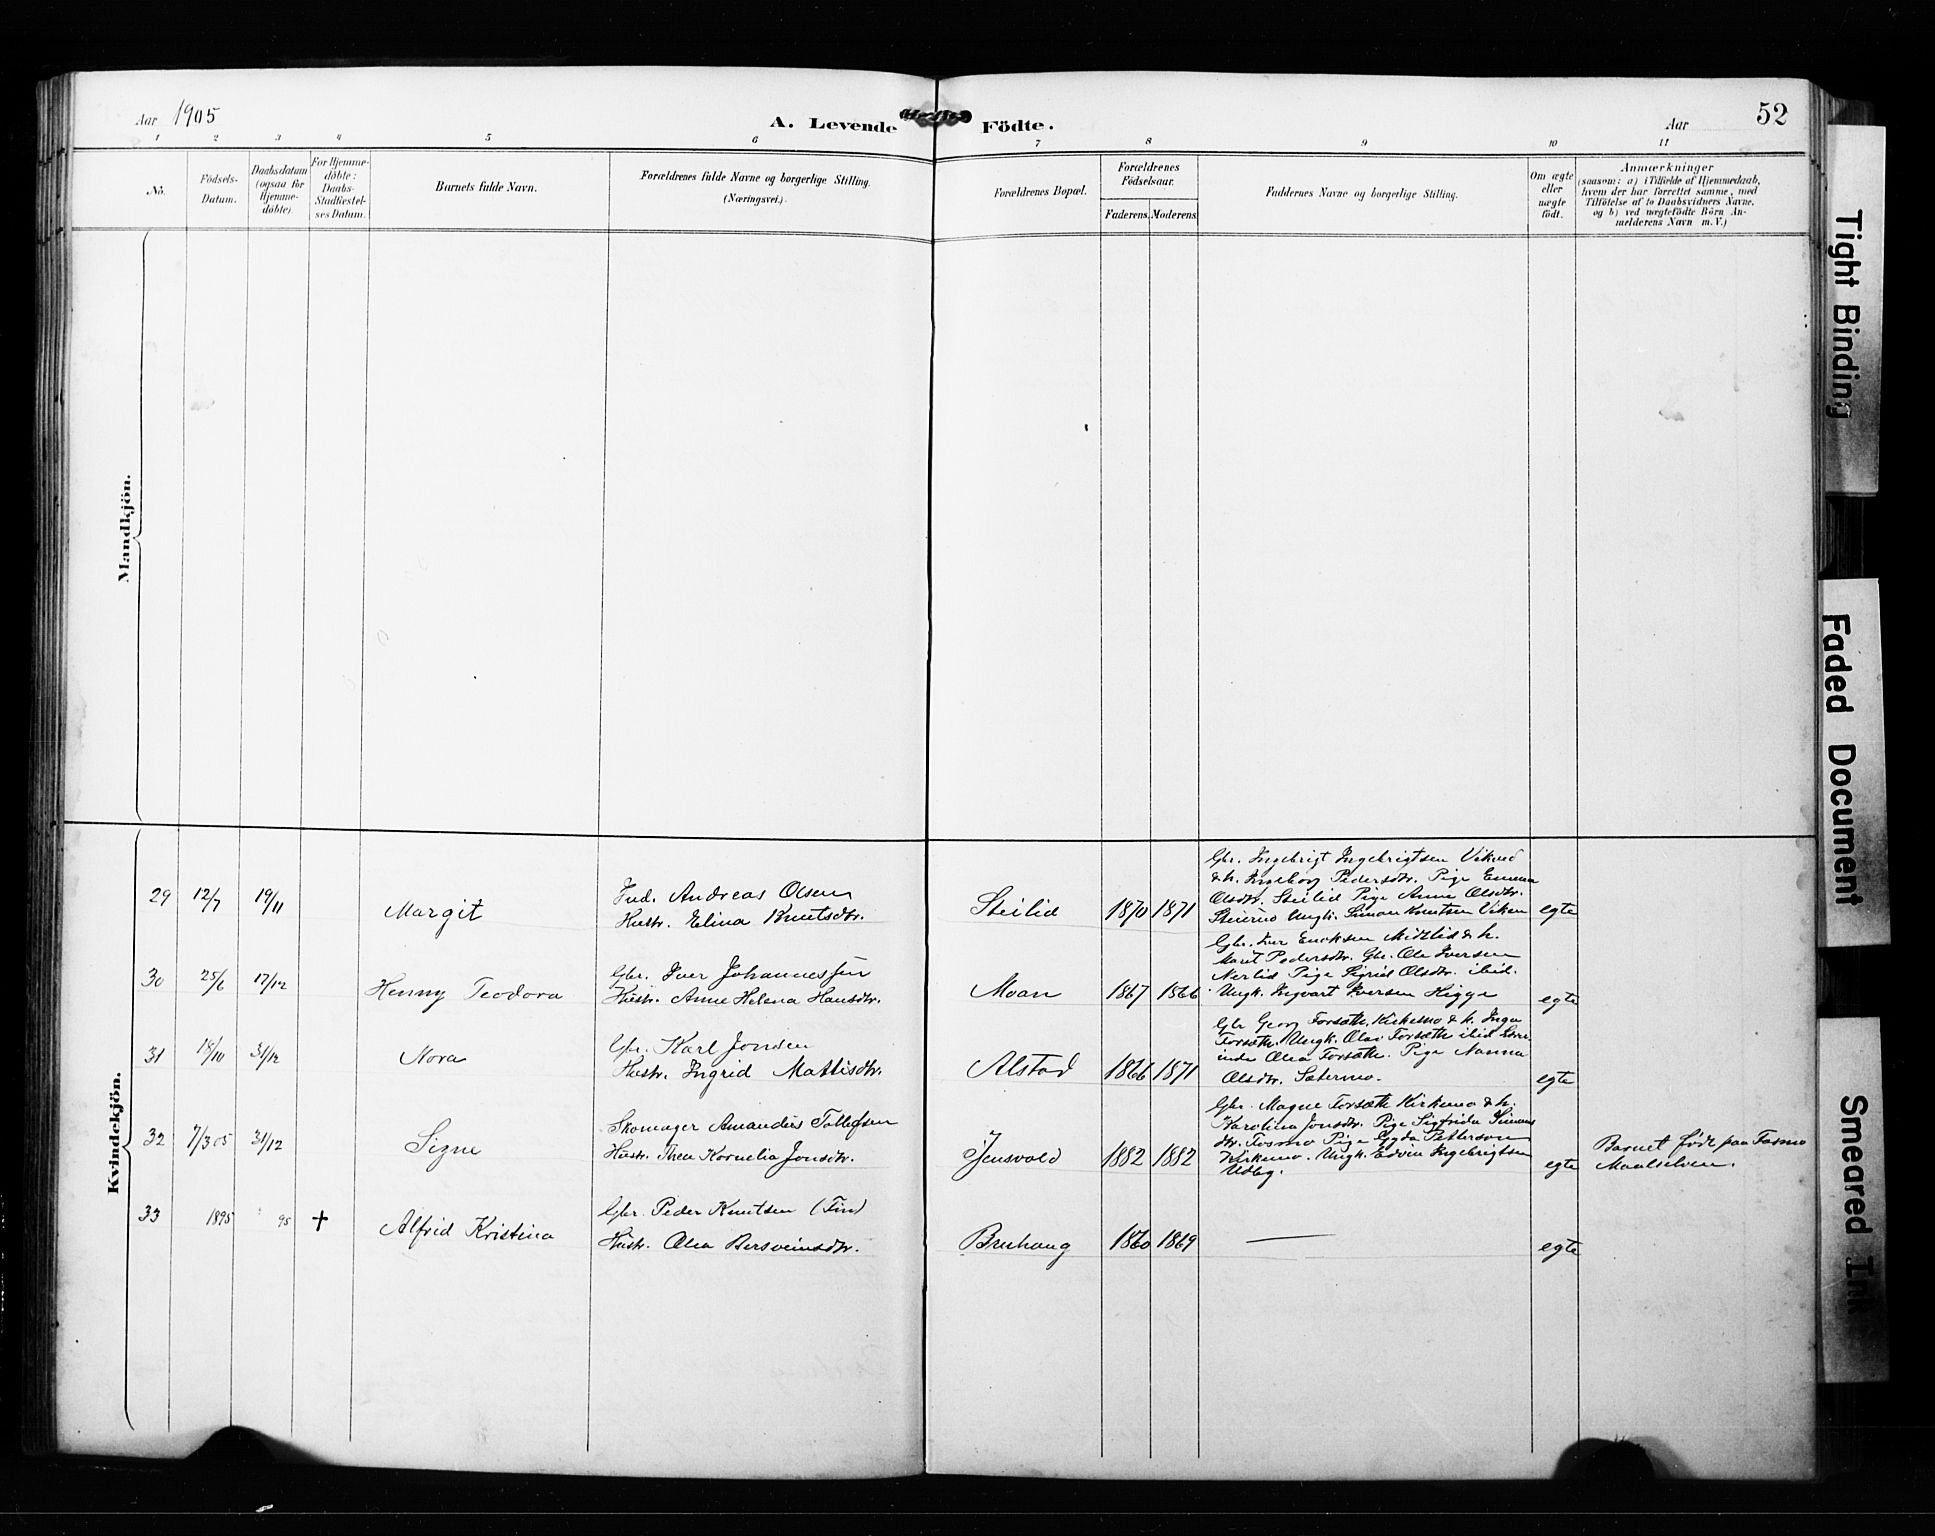 Aar 1905
A. Levende Födte.
Aar
52
1 2 3 4 5 6 7 8 9 10 11
Nö.
Födsels-
Datum.
Daabsdatum
(ogsaa for
Hjemme-
döbte).
For Hjemme-
döbte:
Daabs-
Stadfæstel-
ses Datum.
Barnets fulde Navn.
Forældrenes fulde Navne og borgerlige Stilling.
(Næringsvei.)
Forældrenes Bopæl.
Forældrenes
Födselsaar.
Faderens. Moderens.
Faddernes Navne og borgerlige Stilling.
Om ægte
eller
uægte
födt.
Anmærkninger
(saasom: a) i Tilfælde af Hjemmedaab,
hvem der har forrettet samme, med
Tilföielse af to Daabsvidners Navne,
og b) ved uægtefödte Börn An-
melderens Navn m. V.)
Mandkjön.
Kvindekjön.
29 12/7 19/11 Margit
Ind. Andreas Olsen
Hustr. Elina Knutsdtr.
Steilid 1870 1871
Gbr. Ingebrigt Ingebrigtsen Vikved
& h. Ingeborg Pedersdtr. Pige Emma
Olsdtr. Steilid Pige Anne Olsdtr.
Ungk. Simon Knutsen Viken
egte
30 25/6 17/12 Henny Teodora
Gbr. Iver Johannessen
Hustr. Anne Helena Hansdtr.
Moan 1867 1866
Gbr. Iver Eriksen Midtlid & h.
Marit Pedersdtr. Gbr. Ole Iversen
Nerlid Pige Sigrid Olsdtr. ibid.
Ungk. Ingvart Iversen Higge
egte
31 18/10 31/12 Nora
Gbr. Karl Jonsen
Hustr. Ingrid Mattisdtr.
Alstad 1866 1871
Gbr Georg Forsæth, Kirkemo & h. Inga
Forsæth. Ungk. Olav Forsæth ibid Lærer
inde Olea Forsæth. Pige Nanna
Olsdtr. Sætermo.
egte
32 7/3 05 31/12 Signe
Skomager Amandus Tollefsen
Hustr. Thea Kornelia Jonsdtr.
Jensvold 1882 1882
Gbr. Magne Forsæth Kirkemo & h.
Karolina Jonsdtr. Pige Sigfrida Simons
dtr. Fosmo Pige Gyda Pettersen
Kirkemo. Ungk. Edvin Ingebrigtsen
Udbg.
egte
Barnet født paa Fosmo
Maalselven.
33 1895 95 + Alfrid Kristina
Gbr. Peder Knutsen (Fin)
Hustr. Olea Bersveinsdtr.
Bruhaug 1860 1869 —
egte
Tight Binding
Faded Document
Smeared Ink